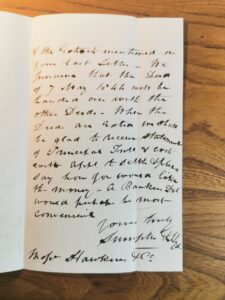 of the Schedule mentioned in
your last letter - We
presume that the Deed
of 7 May 1844 will be
handed over with the
other Deeds. When the
Deeds are
be glad to receive statement
of Principal Int & cost
with
say how you would like
the money - A Bankers
would perhaps be most
convenient
Yours truly
Messrs Hawkins & Co